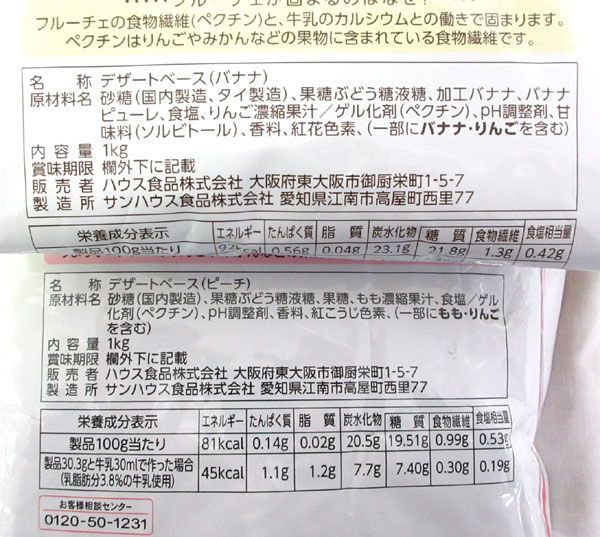 フルーチェの食物繊維(ペクチン)と、牛乳のカルシウムとの働きで固まります。
ペクチンはりんごやみかんなどの果物に含まれている食物繊維です。
名 称 デザートベース(バナナ)
原材料名 砂糖(国内製造、タイ製造)、果糖ぶどう糖液糖、加工バナナ、バナナ
ピューレ、食塩、りんご濃縮果汁/ゲル化剤(ペクチン)、pH調整剤、甘
味料(ソルビトール)、香料、紅花色素、(一部にバナナ・りんごを含む)
内 容 量 1kg
賞味期限 欄外下に記載
販 売 者 ハウス食品株式会社 大阪府東大阪市御厨栄町1-5-7
製 造 所 サンハウス食品株式会社 愛知県江南市高屋町西里77
栄養成分表示 エネルギー たんぱく質 脂 質 炭水化物 糖 質 食物繊維 食塩相当量
製品100g当たり 92kcal 0.56g 0.04g 23.1g 21.8g 1.3g 0.42g
名 称 デザートベース(ピーチ)
原材料名 砂糖(国内製造)、果糖ぶどう糖液糖、果糖、もも濃縮果汁、食塩/ゲル
化剤(ペクチン)、pH調整剤、香料、紅こうじ色素、(一部にもも・りんご
を含む)
内 容 量 1kg
賞味期限 欄外下に記載
販 売 者 ハウス食品株式会社 大阪府東大阪市御厨栄町1-5-7
製 造 所 サンハウス食品株式会社 愛知県江南市高屋町西里77
栄養成分表示 エネルギー たんぱく質 脂 質 炭水化物 糖 質 食物繊維 食塩相当量
製品100g当たり 81kcal 0.14g 0.02g 20.5g 19.51g 0.99g 0.53g
製品30.3gと牛乳30mlで作った場合
(乳脂肪分3.8%の牛乳使用) 45kcal 1.1g 1.2g 7.7g 7.40g 0.30g 0.19g
お客様相談センター
0120-50-1231